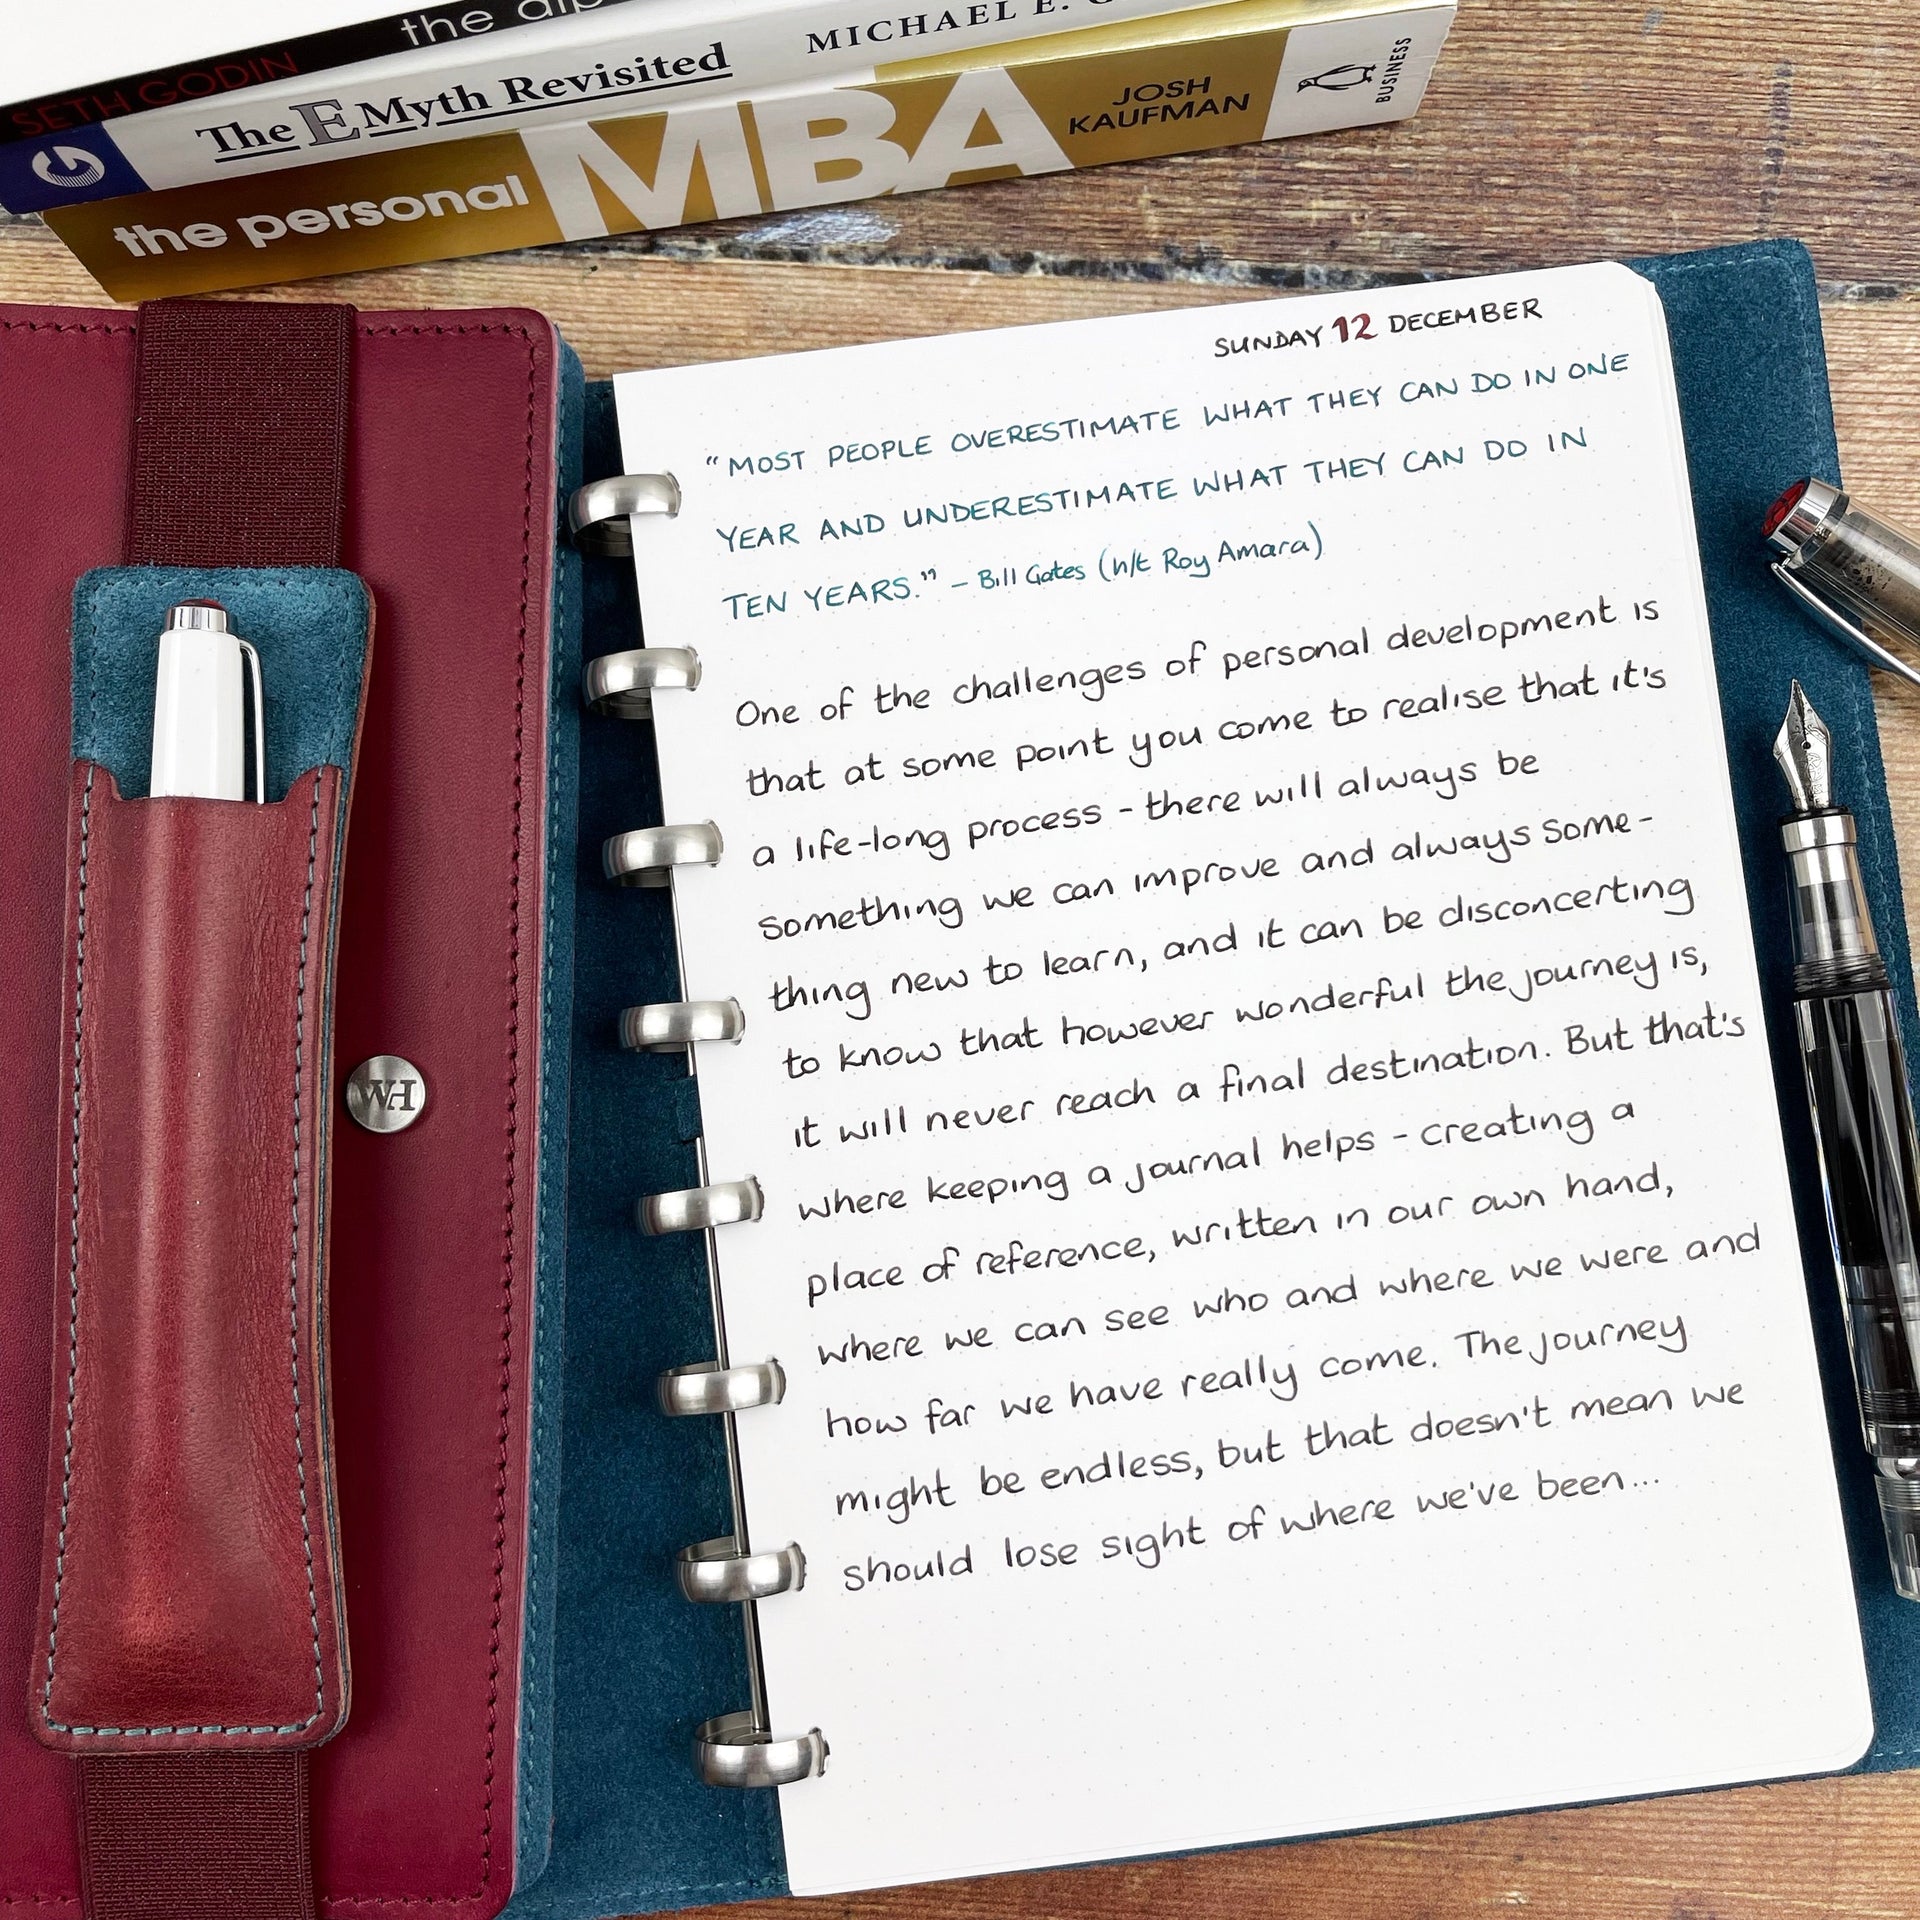 SETH GODIN the dip
The E Myth Revisited MICHAEL E.
the personal MBA JOSH KAUFMAN BUSINESS
SUNDAY 12 DECEMBER
"MOST PEOPLE OVERESTIMATE WHAT THEY CAN DO IN ONE
YEAR AND UNDERESTIMATE WHAT THEY CAN DO IN
TEN YEARS." – Bill Gates (h/t Roy Amara)
One of the challenges of personal development is
that at some point you come to realise that it's
a life-long process - there will always be
something we can improve and always some-
thing new to learn, and it can be disconcerting
to know that however wonderful the journey is,
it will never reach a final destination. But that's
where keeping a journal helps - creating a
place of reference, written in our own hand,
where we can see who and where we were and
how far we have really come. The journey
might be endless, but that doesn't mean we
should lose sight of where we've been...
WH